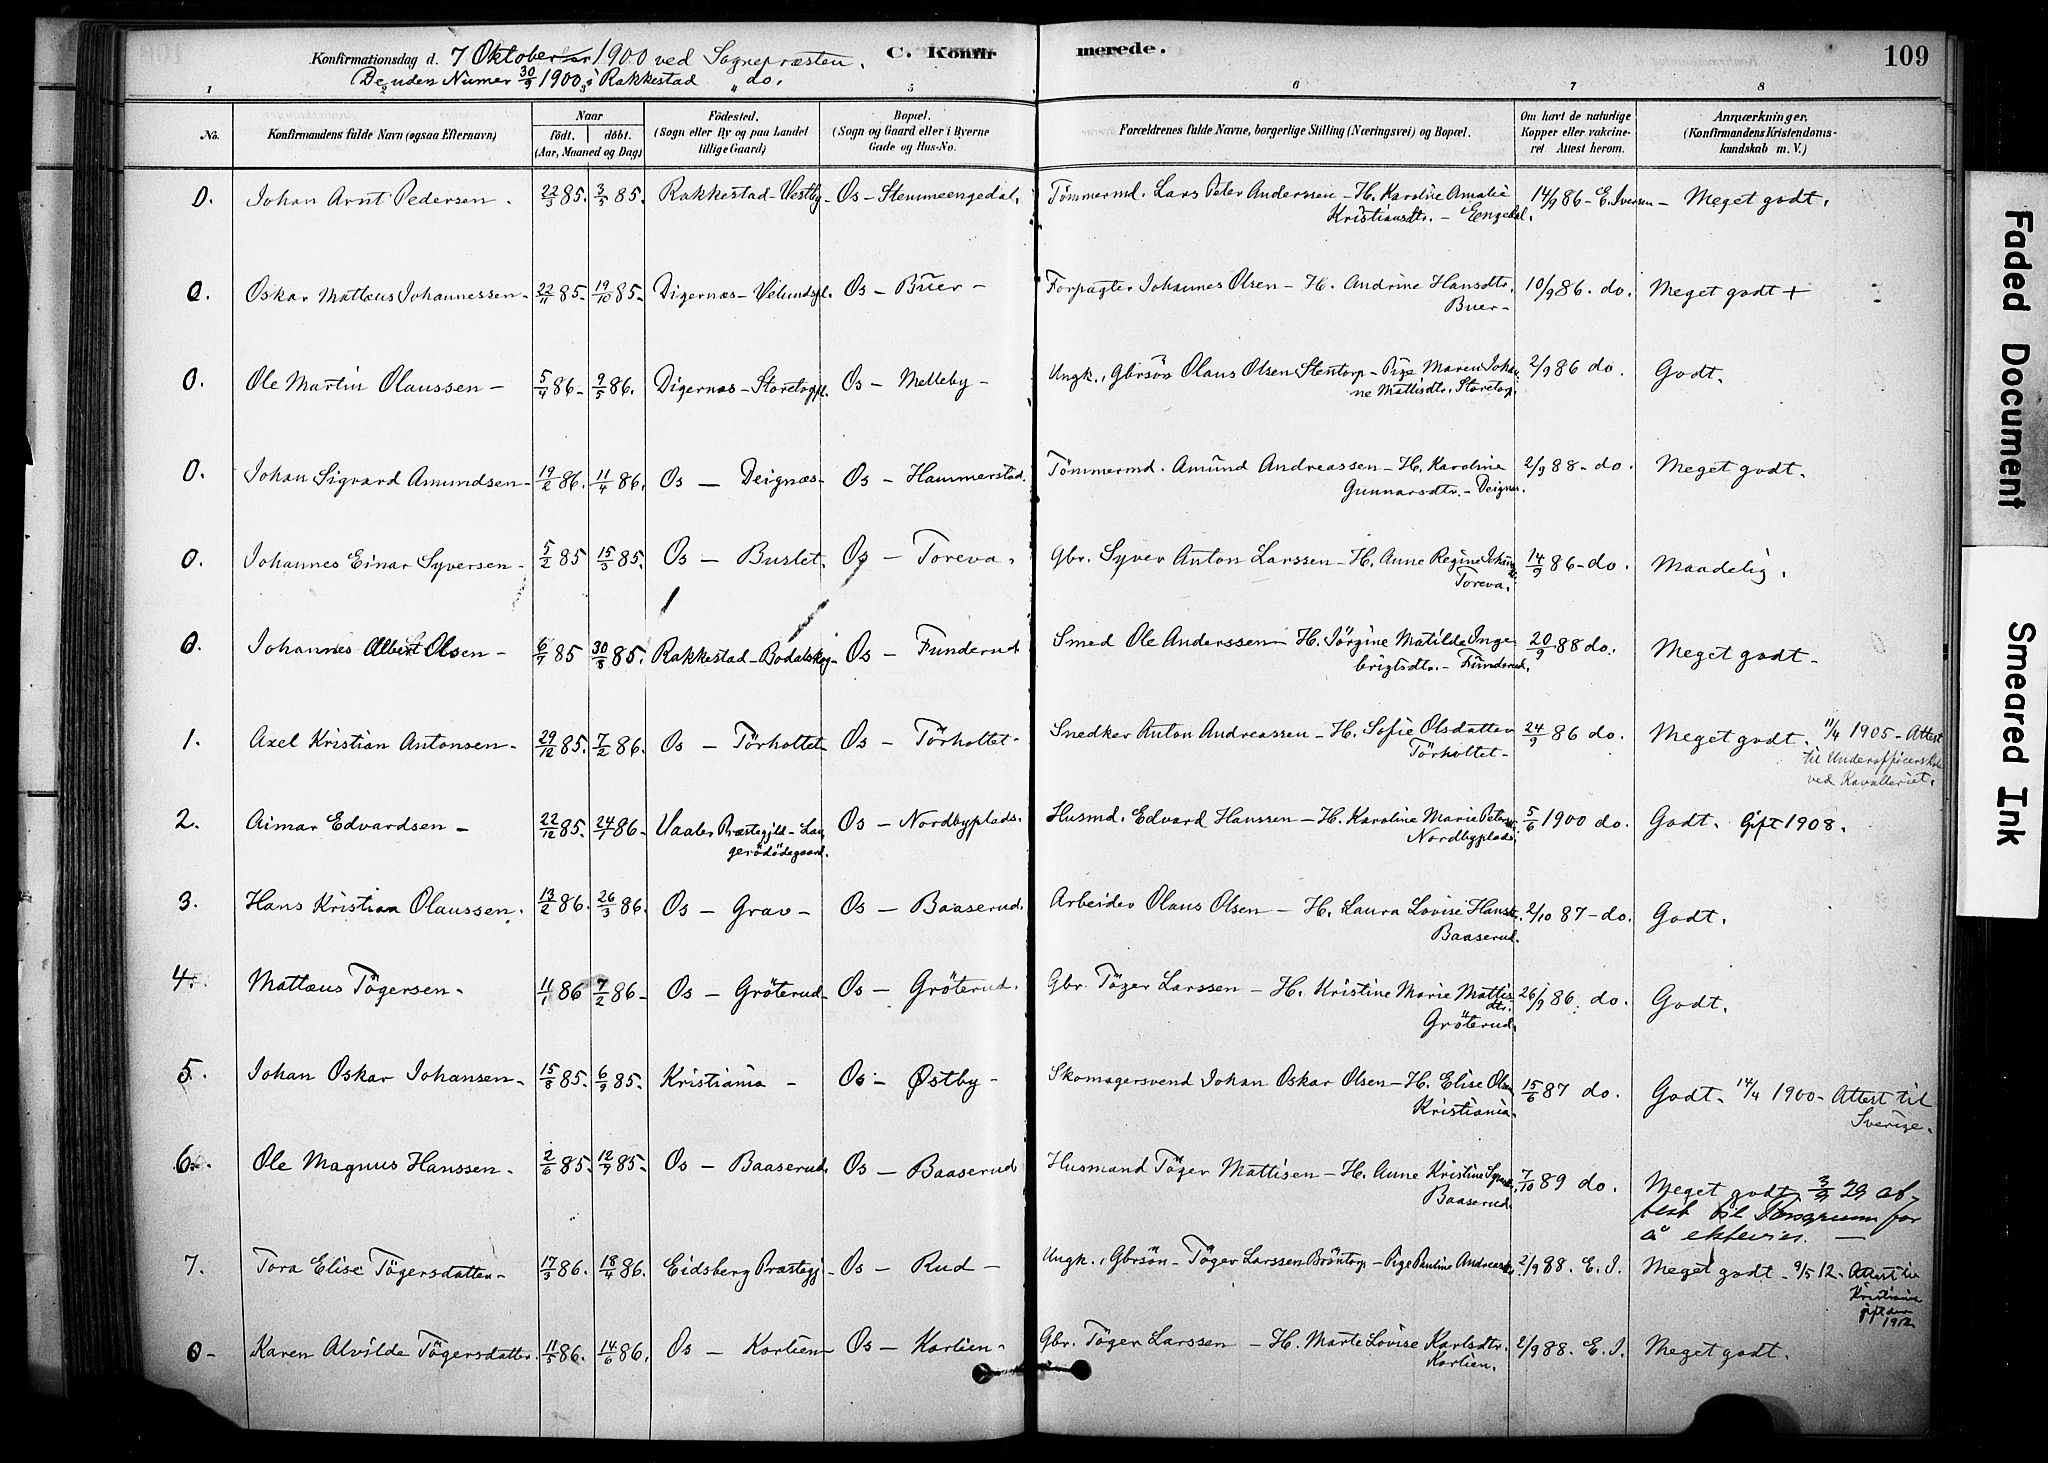 Konfirmationsdag d. 7 Oktober 1900 ved Sognepræsten. C. Konfirmerede. 109
De uden Numer 30/9 1900 i Rakkestad do.
1 2 3 4 5 6 7 8
No. Konfirmandens fulde Navn (ogsaa Efternavn) Naar født. døbt. (Aar, Maaned og Dag) Fødested. (Sogn eller By og paa Landet tillige Gaard) Bopæl. (Sogn og Gaard eller i Byerne Gade og Hus-No. Forældrenes fulde Navne, borgerlige Stilling (Næringsvei) og Bopæl. Om havt de naturlige Kopper eller vakcineret Attest herom. Anmærkninger. (Konfirmandens Kristendomskundskab m. V.)
0. Johan Arnt Pedersen. 22/3 85. 3/5 85. Rakkestad-Vestby- Os-Stemmeengedal. Tömmermd. Lars Peter Anderssen-H. Karoline Amalie 14/9 86-E. Iversen- Meget godt.
Kristiansdtr.-Engedal.
0. Oskar Matteus Johannessen- 85- 19/10 85- Digernæs- Os-Buer- Forpagter Johannes Olsen-H. Andrine Hansdtr. 10/9 86. do. Meget godt +
Buer-
0. Ole Martin Olaussen- 5/4 86- 9/5 86. Digernæs-Storetorppl. Os-Melleby- Ungk., Gbrsön Olaus Olsen Stentorp-Pige Maren Johan 2/9 86 do. Godt.
ne Mattisdtr. Storetorp.
0. Johan Sigvard Amundsen- 19/2 86. 11/4 86. Os-Deignæs- Os-Hammerstad. Tömmermd. Amund Andreassen-H. Karoline 2/9 88-do. Meget godt.
Gunnarsdtr.-Deignes.
0. Johannes Einar Syversen- 5/2 85 15/3 85. Os-Buslet. Os-Toreva. Gbr. Syver Anton Larssen-H. Anne Regine 14/9 86-do. Maadelig.
Toreva.
0. Johannes Albert Olsen- 6/7 85 30/8 85. Rakkestad-Bodalskog- Os-Funderud Smed Ole Anderssen-H. Jörgine Matilde Inge 20/9 88 do. Meget godt-
brigtsdtr.-Funderud.
1. Axel Kristian Antonsen- 29/12 85. 7/2 86. Os-Törholtet- Os-Törholtet- Snedker Anton Andreassen-H. Sofie Olsdatter 24/9 86 do. Meget godt. 11/4 1905-Attest
Törholtet- til Underofficerskole
ved Kavalleriet.
2. Aimar Edvardsen- 22/12 85. 24/1 86- Vaaler Præstegjeld-Lau Os-Nordbyplads. Husmd. Edvard Hanssen-H. Karoline Marie Petersdtr. 5/6 1900 do. Godt. Gift 1908.
gerödödegaard. Nordbyplads.
3. Hans Kristian Olaussen. 13/2 86. 26/3 86. Os-Grav- Os-Baaserud. Arbeider Olaus Olsen-H. Laura Lovise Hansdtr. 2/10 87-do. Godt.
Baaserud.
4. Mattæus Tögersen- 11/1 86 7/2 86- Os-Gröterud- Os-Gröterud. Gbr. Töger Larssen-H. Kristine Marie Mattis 26/9 86. do. Godt.
dtr.
Gröterud.
5. Johan Oskar Johansen- 15/8 85. 6/9 85. Kristiania- Os-Østby- Skomagersvend Johan Oskar Olsen-H. Elise Olsen 15/6 87 do. Godt. 14/4 1900-Attest til
Kristiania. Sverige.
6. Ole Magnus Hanssen- 2/6 85. 12/7 85- Os-Baaserud. Os-Baaserud Husmand Töger Mattisen-H. Anne Kristine 7/10 89 do. Meget godt. 3/9 29 at-
Baaserud. test til for
å ektevies.-
7. Tora Elise Tögersdatter- 17/3 86. 18/4 86. Eidsberg Præstegj- Os-Rud- Ungk., Gbrsön-Töger Larssen Bröntorp-Pige Pauline Andreasdtr. 2/9 88. E. I. Meget godt. 9/5 12. Attest til
Kristiania
gift der
1912.
0- Karen Alvilde Tögersdatter. 11/5 86. 14/6 86. Os-Korlien- Os-Korlien- Gbr. Töger Larssen-H. Marte Lovise Karlsdtr. 2/9 88. E. I. Meget godt.
Korlien.
Faded Document
Smeared Ink